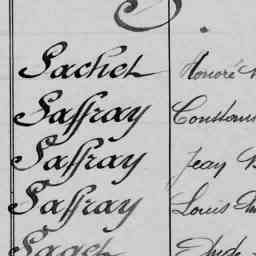 S.
Sachet Honoré
Saffray Constant
Saffray Jean
Saffray Louis
Saget